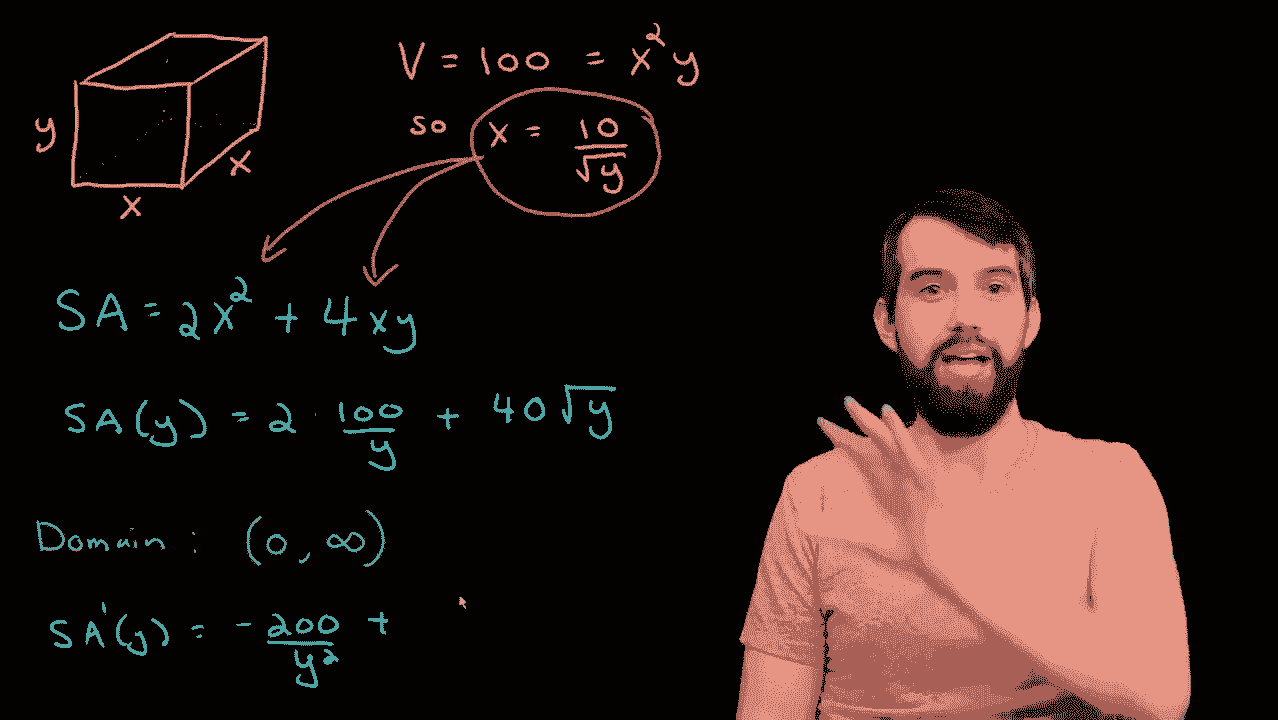 V = 100 = x²y
so x = 10/√y
y
x
x
SA = 2x² + 4xy
SA(y) = 2 · 100/y + 40√y
Domain : (0, ∞)
SA'(y) = -200/y² +